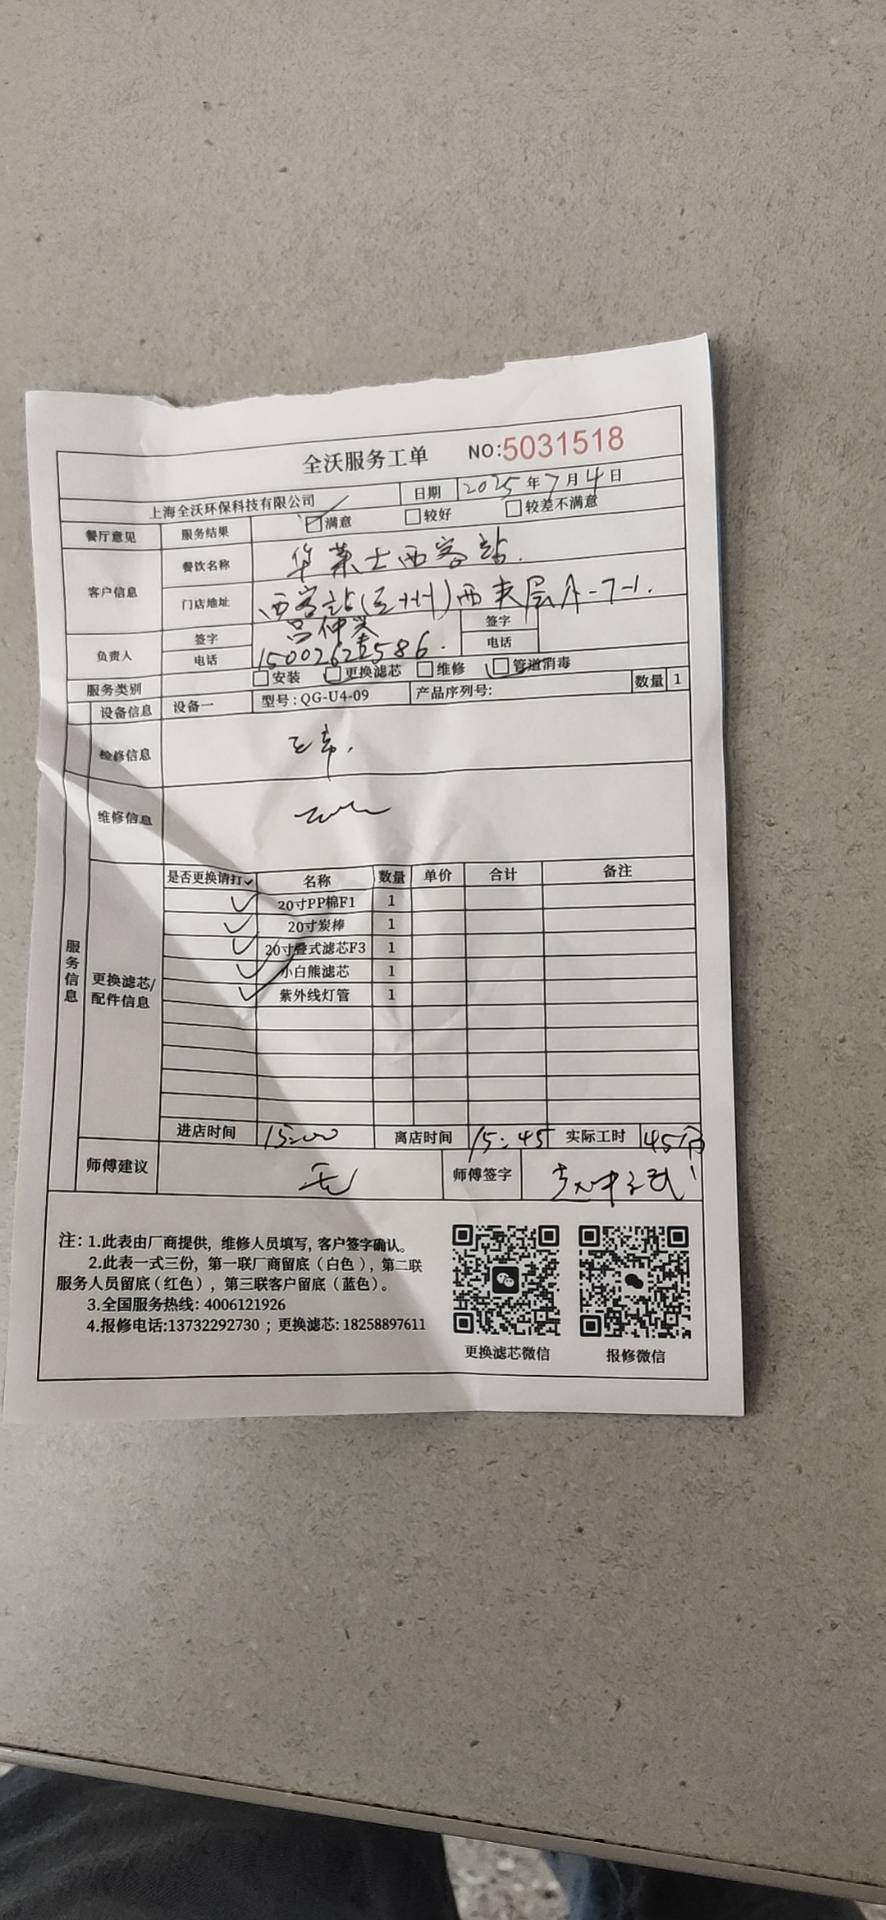 全沃服务工单 NO:5031518
上海全沃环保科技有限公司 日期 2025年7月4日
餐厅意见 服务结果 满意 较好 较差不满意
客户信息 餐饮名称 华莱士西客站.
门店地址 西客站(兰州)西夹层A-7-1.
负责人 签字 吕仲 签字
电话 电话
服务类别 安装 更换滤芯 维修 管道消毒
服务信息
设备信息 设备一 型号:QG-U4-09 产品序列号: 数量 1
检修信息 正常.
维修信息
更换滤芯/配件信息
是否更换请打✓ 名称 数量 单价 合计 备注
✓ 20寸PP棉F1 1
✓ 20寸炭棒 1
✓ 20寸叠式滤芯F3 1
✓ 小白熊滤芯 1
✓ 紫外线灯管 1
进店时间 15:00 离店时间 15:45 实际工时 45分
师傅建议 无 师傅签字
注:1.此表由厂商提供,维修人员填写,客户签字确认。
2.此表一式三份,第一联厂商留底(白色),第二联
服务人员留底(红色),第三联客户留底(蓝色)。
3.全国服务热线:4006121926
4.报修电话:13732292730;更换滤芯:18258897611
更换滤芯微信 报修微信